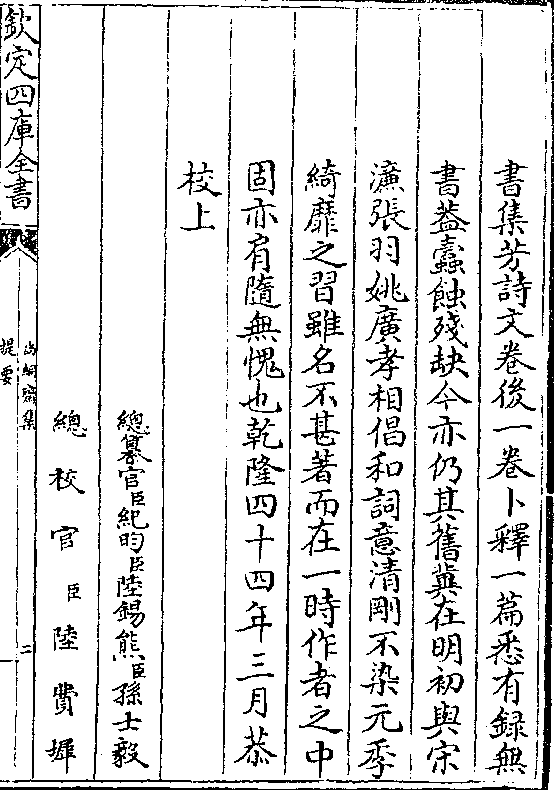 書集芳詩文卷後一卷卜釋一篇悉有録無
書葢蠧蝕殘缺今亦仍其舊冀在明初與宋
濂張羽姚廣孝相倡和詞意清剛不染元季
綺靡之習雖名不甚著而在一時作者之中
固亦肩隨無愧也乾隆四十四年三月恭
校上
總纂官臣紀昀臣陸錫熊臣孫士毅
總校官臣陸費墀
欽定四庫全書
尚絅齋集
提要
二